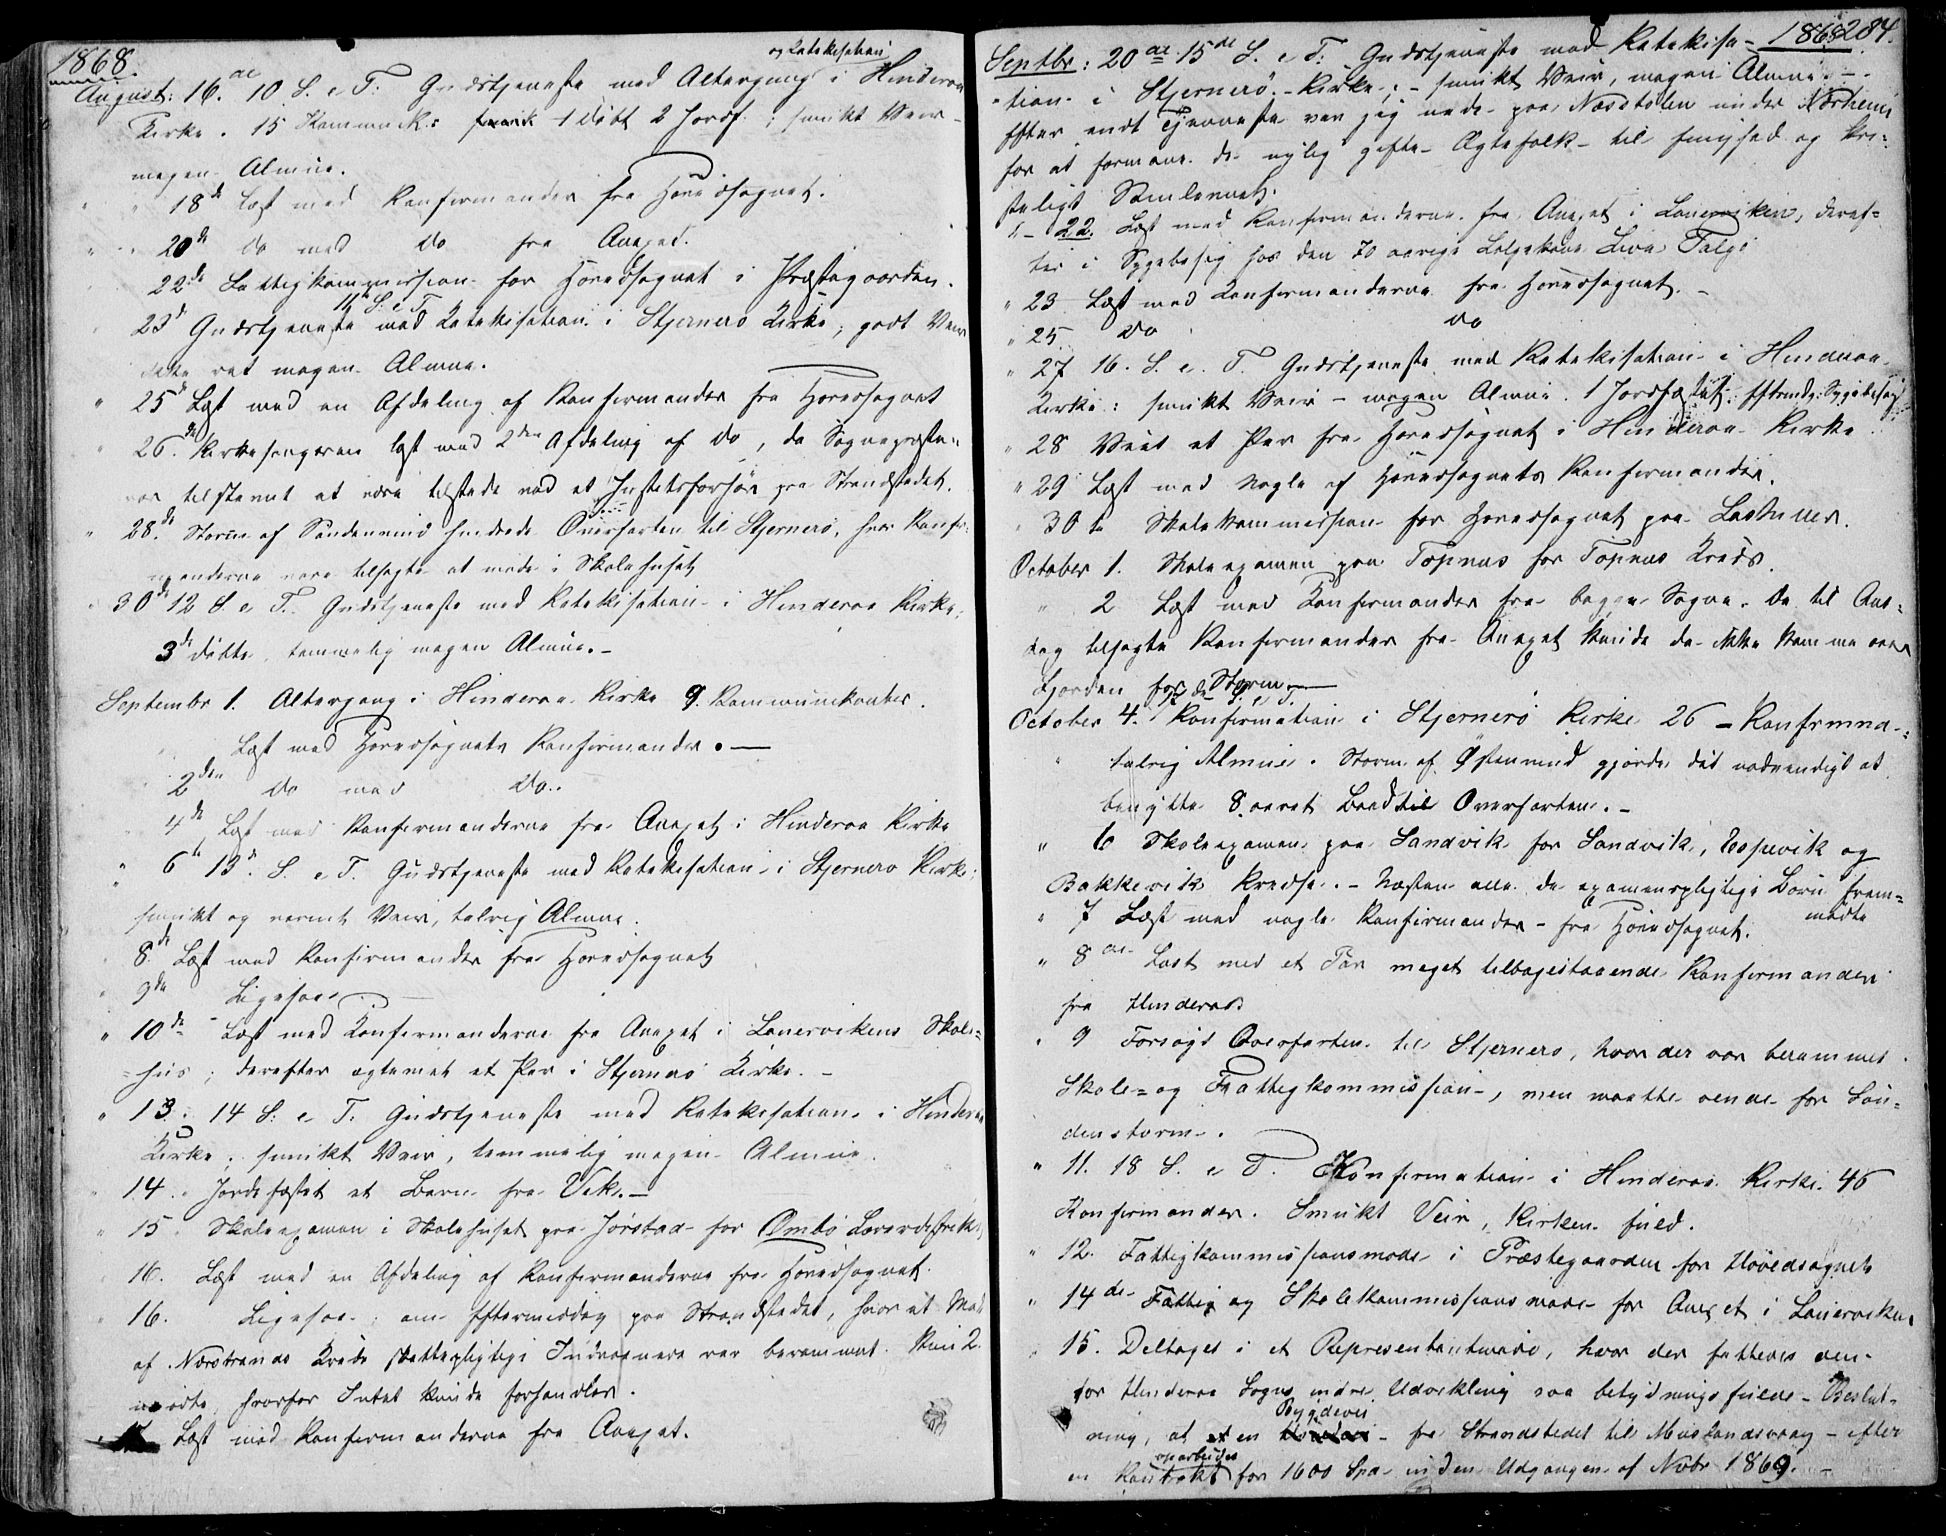 1868.
og Katekisation
August: 16.de 10 S. e T. Gudstjeneste med Altergang i Hinderaa
Kirke. 15 Kommunik: 1 Døbt 2 Jordf.; smukt Veir -
megen Almue.
" " 18de Læst med Konfirmander fra Hovedsognet.
" " 20de do med do fra Anexet.
22de Fattigkommission for Hovedsognet i Præstegaarden.
11te S. e T.
23d Gudstjeneste med Katekisation i Stjernerø Kirke, godt Veir
ikke ret megen Almue.
" 25de Læst med en Afdeling af Konfirmander fra Hovedsognet
" 26.de Kirkesangeren læst med 2den Afdeling af do, da Sognepræsten
var tilstevnt at være tilstede ved et Justitsforhør paa Strandstedet.
" 28.de Storm af Søndenvind hindrede Overfarten til Stjernerø, hvor Konfir-
manderne vare tilsagte at møde i Skolehuset
" 30de 12 S. e T. Gudstjeneste med Katekisation i Hinderaa Kirke,
3de døbte, temmelig megen Almue. -
Septembr 1. Altergang i Hinderaa Kirke 9 Kommunikanter.
Læst med Hovedsognets Konfirmander. —
2den do med do.
4de Læst med Konfirmanderne fra Anexet i Hinderaa Kirke
" 6te 13de S. e T. Gudstjeneste med Katekisation i Stjernerø Kirke;
smukt og varmt Veir, talrig Almue.
" 8de Læst med Konfirmander fra Hovedsognet
" 9de Ligesaa
" 10de Læst med Konfirmanderne fra Anexet i Lanervikens Skole-
=hus; derefter ægteviet et Par i Stjernerø Kirke. -
" 13. 14 S. e T. Gudstjeneste med Katekisation i Hinderaa
Kirke; smukt Veir, temmelig megen Almue.
" 14. Jordfæstet et Barn fra Vik. —
" 15. Skoleexamen i Skolehuset paa Jørstad for Ombø Lærerdistrikt
" 16. Læst med en Afdeling af Konfirmanderne fra Hovedsognet.
" 16. Ligesaa; om Eftermiddag paa Strandstedet, hvor et Møde
af Nærstrands Kreds skattepligtige Indvaanere var berammet. Kun 2.
mødte, hvorfor Intet kunde forhandles.
17 Læst med Konfirmanderne fra Anexet.
1868 284.
Septbr: 20de 15de S. e T. Gudstjeneste med Katekisa-
-tion i Stjernerø-Kirke; - smukt Veir, megen Almue. -
Efter endt Tjeneste var jeg nede paa Nordtolen under Norheim
for at formane de nylig gifte Ægtefolk til Enighed og kri-
steligt Samlevnet.
" - 22. Læst med Konfirmanderne fra Anexet i Lanerviken, deref-
ter i Sygebesøg hos den 70 aarige Lægdskone Liva Talge
" 23 Læst med Konfirmanderne fra Hovedsognet. -
" 25 do do
" 27 16. S. e. T. Gudstjeneste med Katekisation i Hinderaa
Kirke: smukt Veir - megen Almue. 1 Jordfæstet. Eftermdg: Sygebesøg
" 28 Viet et Par fra Hovedsognet i Hinderaa Kirke.
" 29 Læst med Nogle af Hovedsognets Konfirmander.
" 30te Skolekommission for Hovedsognet paa
October 1. Skoleexamen paa Topnes for Topnes Kreds.
" 2 Læst med Konfirmander fra begge Sogne. De til
dag tilsagte Konfirmander fra Anexet kunde da ikke komme over
Fjorden for Storm. —
17de S. e. T.
October 4. Konfirmation i Stjernerø Kirke 26 - Konfirmnd.
" talrig Almue. Storm af Østenvind gjorde det nødvendigt at
benytte 8.aaret Baad til Overfarten. -
" 6 Skoleexamen paa Sandvik for Sandvik, Espevik og
Bakkevik Kredse. - Næsten alle de examenspligtige Børn frem=
mødte
" 7 Læst med nogle Konfirmander - fra Hovedsognet.
" 8de Læst med et Par meget tilbagestaaende Konfirmander
fra Hinderaa.
" 9 Forsøgt Overfarten til Stjernerø, hvor der var berammet
Skole= og Fattigkommission, men maatte vende for Søn=
denstorm.
" 11. 18 S. e T. Konfirmation i Hinderaa Kirke. 46
Konfirmander. Smukt Veir, Kirken fuld.
" 12. Fattigkommissionsmøde i Præstegaarden for Hovedsognet
" 14de Fattig og Skolekommissionsmøde for Anexet i Lanerviken
" 15. Deltaget i et Representantmøde, hvor der fattedes den
for Hinderaa Sogns indre Udvikling saa betydningsfulde - Beslut-
Bygdevei
ning, at en - fra Strandstedet til Mislandsvaag - efter
oparbeides
en Kontrakt for 1600 Spd. inden Udgangen af Novbr 1869. -